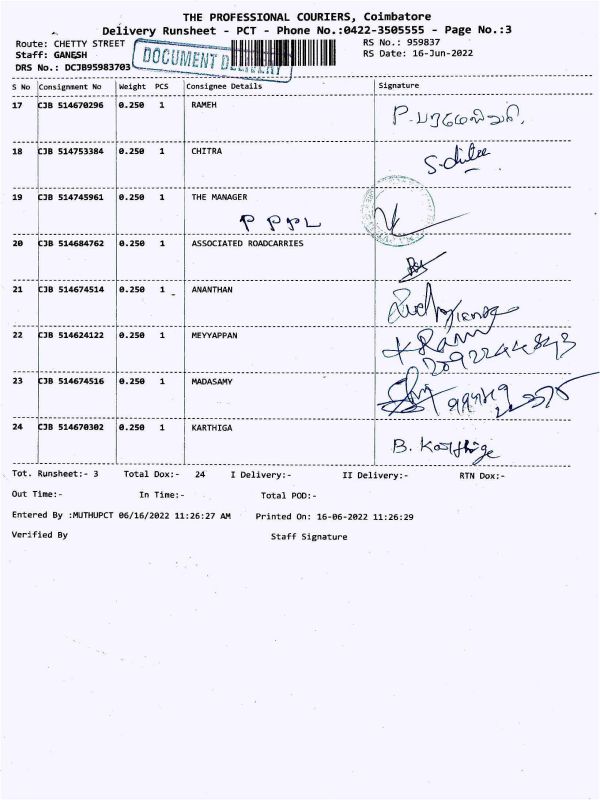 THE PROFESSIONAL COURIERS, Coimbatore
Delivery Runsheet - PCT - Phone No.:0422-3505555 - Page No.:3
Route: CHETTY STREET RS No.: 959837
Staff: GANESH RS Date: 16-Jun-2022
DRS No.: DCJB95983703
DOCUMENT DELIVERY
S No Consignment No Weight PCS Consignee Details Signature
17 CJB 514670296 0.250 1 RAMEH
18 CJB 514753384 0.250 1 CHITRA
19 CJB 514745961 0.250 1 THE MANAGER
P P P L
20 CJB 514684762 0.250 1 ASSOCIATED ROADCARRIES
21 CJB 514674514 0.250 1 ANANTHAN
22 CJB 514624122 0.250 1 MEYYAPPAN
23 CJB 514674516 0.250 1 MADASAMY
24 CJB 514670302 0.250 1 KARTHIGA
B. Karthige
Tot. Runsheet:- 3 Total Dox:- 24 I Delivery:- II Delivery:- RTN Dox:-
Out Time:- In Time:- Total POD:-
Entered By :MUTHUPCT 06/16/2022 11:26:27 AM Printed On: 16-06-2022 11:26:29
Verified By Staff Signature